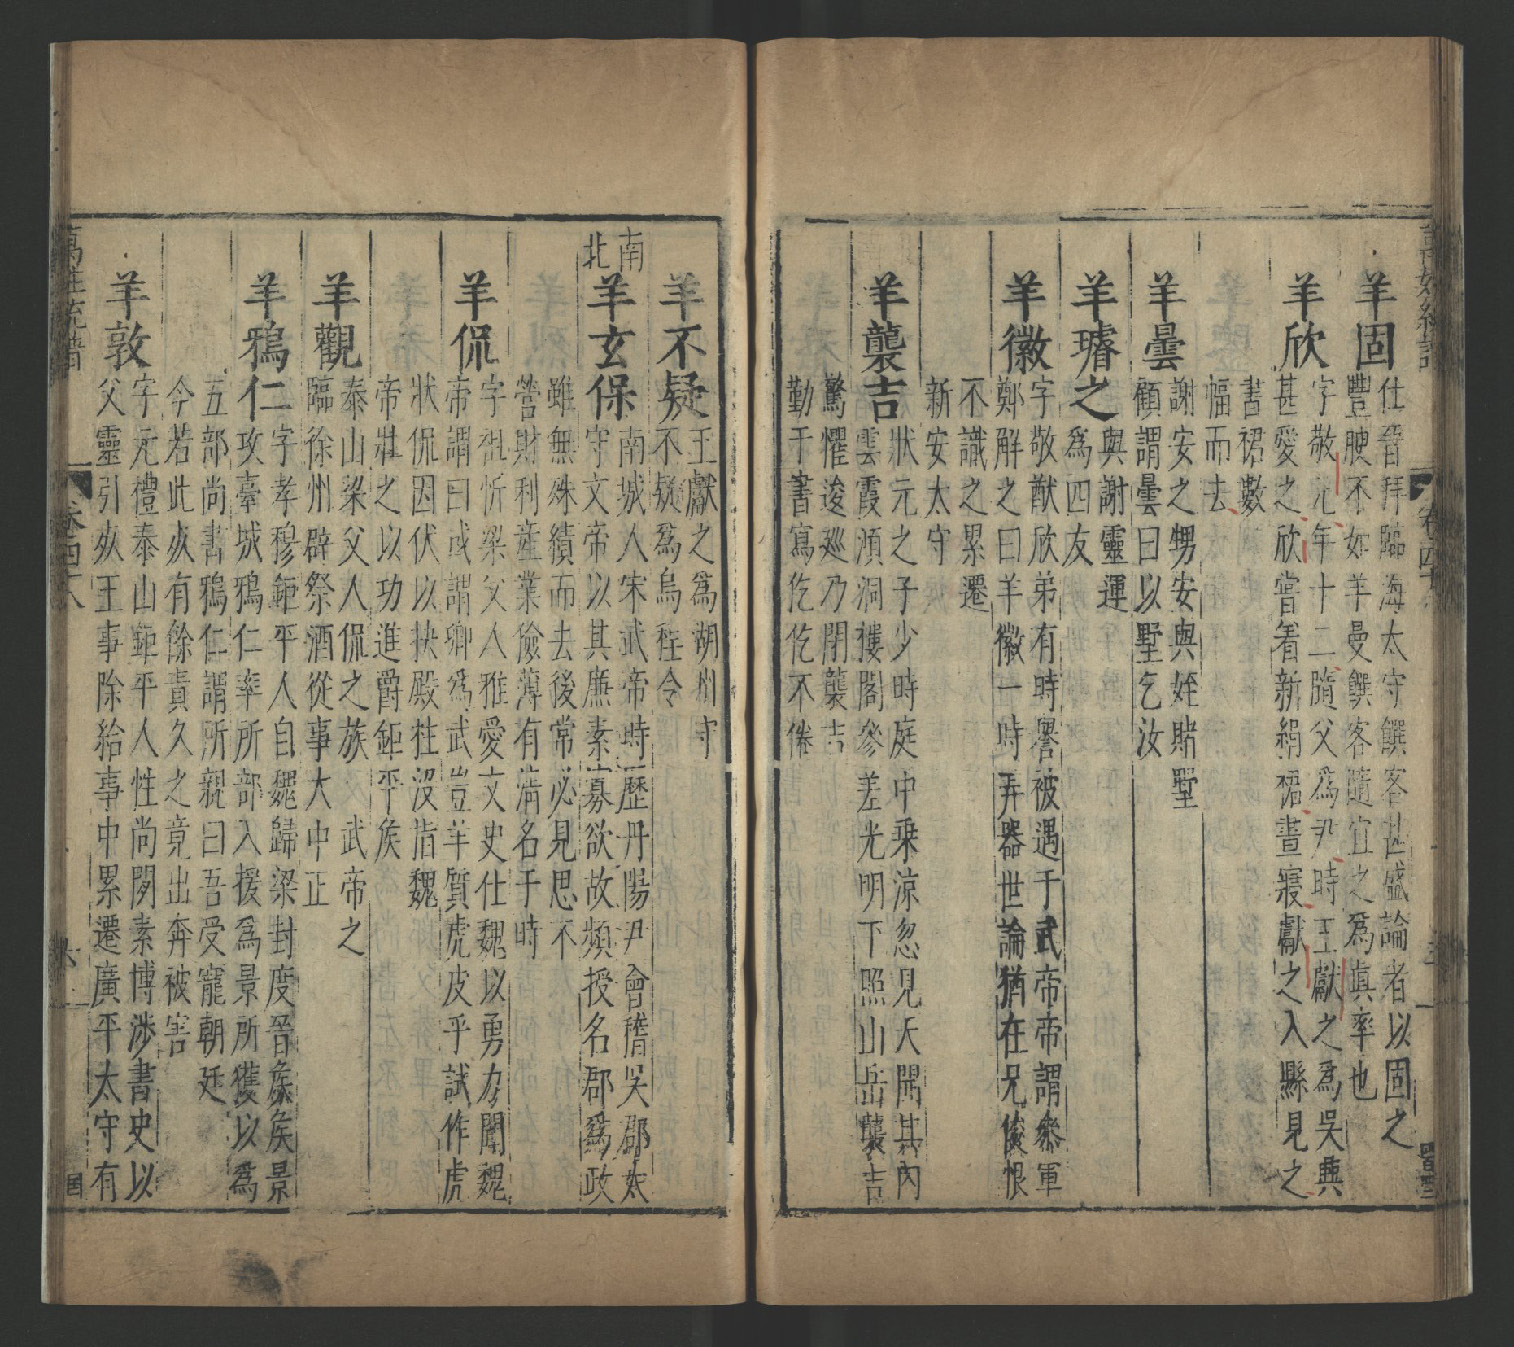 羊固仕晉拜臨海太守饌客甚盛論者以固之
豐腴不如羊曼饌客隨宜之爲真率也
羊欣字敬元年十二隨父爲尹時王獻之爲吳興
甚愛之欣嘗着新絹裙晝寢獻之入縣見之
書裙數
幅而去
羊曇謝安之甥安與姪賭墅
顧謂曇曰以墅乞汝
羊璿之與謝靈運
爲四友
羊徽字敬猷欣弟有時譽被遇于武帝帝謂叅軍
鄭解之曰羊徽一時弄器世論猶在兄後恨
不識之累遷
新安太守
羊襲吉狀元之子少時庭中乗涼忽見天開其內
雲霞澒洞樓閣參差光明下照山岳襲吉
驚懼逡巡乃閉襲吉
勤于書寫仡仡不倦
羊不疑王獻之爲湖州守
不疑爲烏程令
南
北
羊玄保南城人宋武帝時歷丹陽尹會稽吳郡太
守文帝以其廉素寡欲故頻授名郡爲政
雖無殊績而去後常必見思不
營財利產業儉薄有滿名于時
羊侃字祖忻梁父人雅愛文史仕魏以勇力聞魏
帝謂曰或謂卿爲武豈羊質虎皮乎試作虎
狀侃因伏以抉殿柱沒指魏
帝壯之以功進爵鉅平侯
羊觀泰山梁父人侃之族 武帝之
臨徐州辟祭酒從事大中正
羊鴉仁字孝穆鉅平人自魏歸梁封度晉侯侯景
攻臺城鴉仁率所部入援爲景所獲以爲
五部尚書鴉仁謂所親曰吾受寵朝廷
今若此以有餘責久之竟出奔被害
羊敦字元禮泰山鉅平人性尚閑素博涉書史以
父靈引死王事除給事中累遷廣平太守有